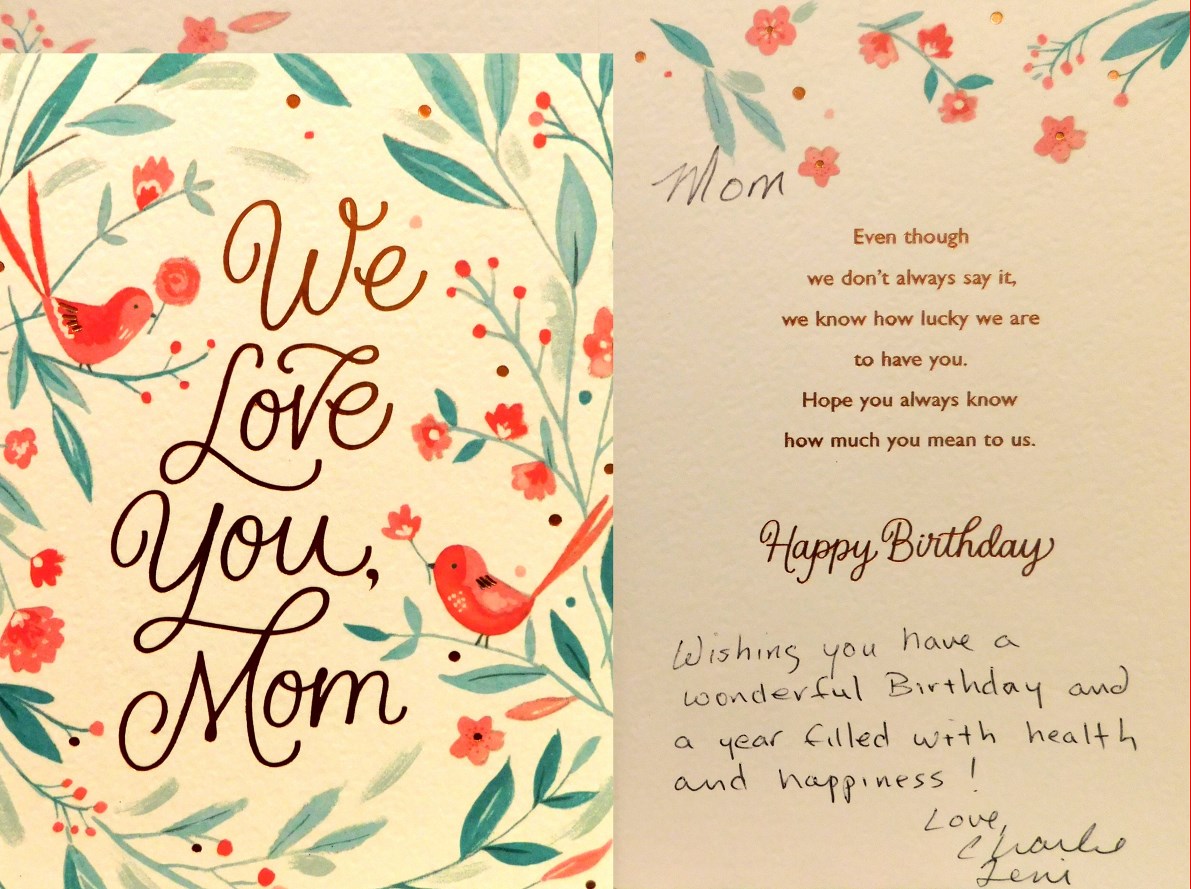 We
Love
You,
Mom
Mom
Even though
we don't always say it,
we know how lucky we are
to have you.
Hope you always know
how much you mean to us.
Happy Birthday
Wishing you have a
wonderful Birthday and
a year filled with health
and happiness!
Love,
Charlie